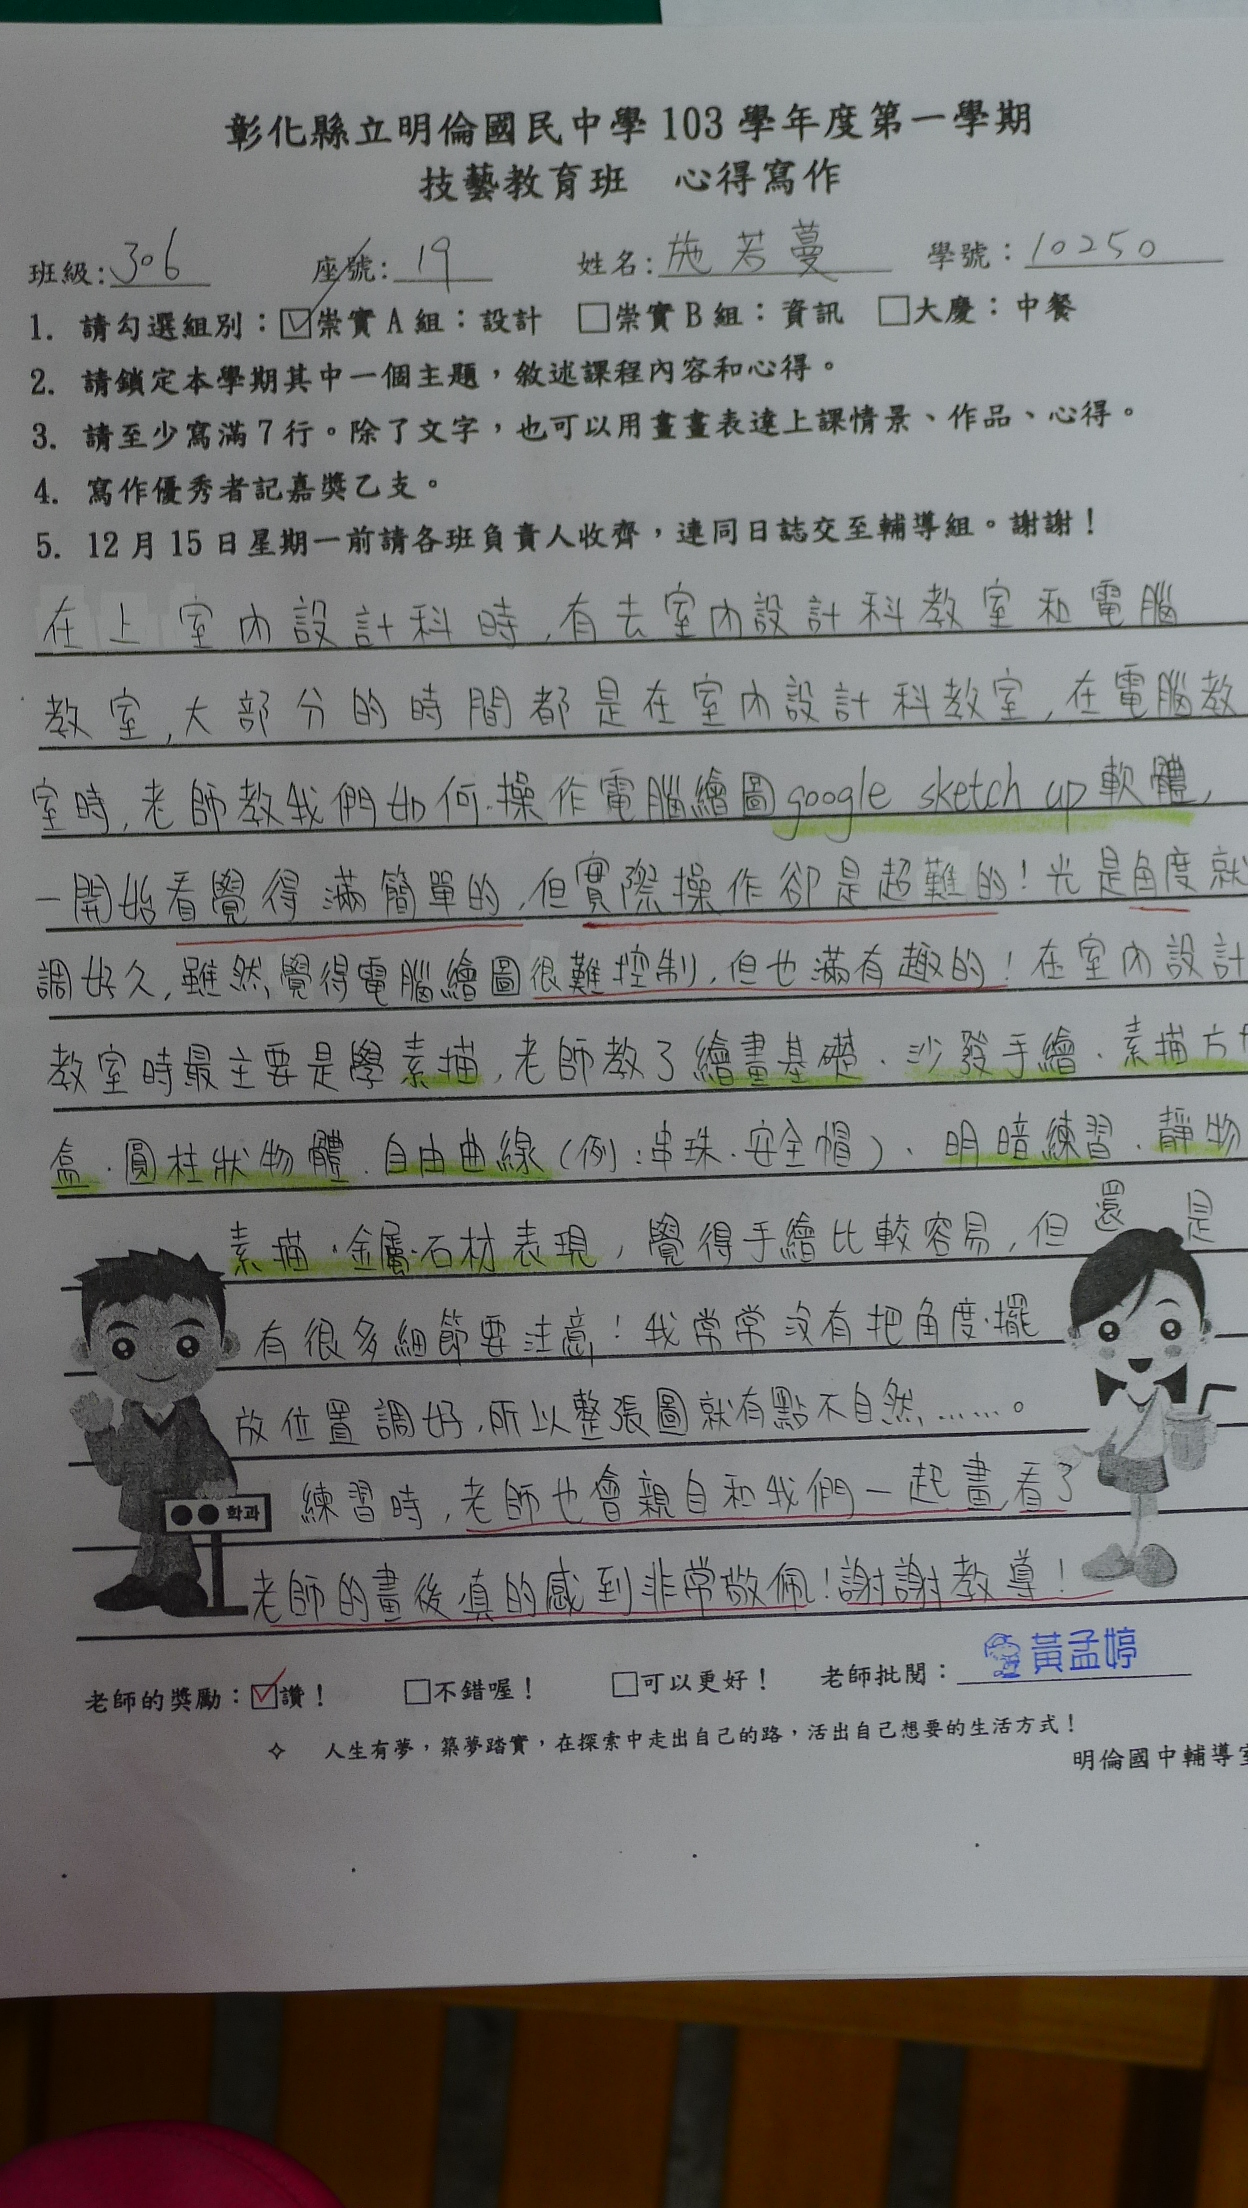 彰化縣立明倫國民中學103學年度第一學期
技藝教育班 心得寫作
班級:306 座號:19 姓名:施若蔓 學號:10250
1. 請勾選組別:☑崇實A組:設計 □崇實B組:資訊 □大慶:中餐
2. 請鎖定本學期其中一個主題,敘述課程內容和心得。
3. 請至少寫滿7行。除了文字,也可以用畫畫表達上課情景、作品、心得。
4. 寫作優秀者記嘉獎乙支。
5. 12月15日星期一前請各班負責人收齊,連同日誌交至輔導組。謝謝!
在上室內設計科時,有去室內設計科教室和電腦
教室,大部分的時間都是在室內設計科教室,在電腦教
室時,老師教我們如何操作電腦繪圖google sketch up軟體,
一開始看覺得滿簡單的,但實際操作卻是超難的!光是角度就
調好久,雖然覺得電腦繪圖很難控制,但也滿有趣的!在室內設計
教室時最主要是學素描,老師教了繪畫基礎、沙發手繪、素描方
盒、圓柱狀物體、自由曲線(例:串珠、安全帽)、明暗練習、靜物
素描、金屬石材表現,覺得手繪比較容易,但還是
有很多細節要注意!我常常沒有把角度、擺
放位置調好,所以整張圖就有點不自然……。
練習時,老師也會親自和我們一起畫,看了
老師的畫後真的感到非常敬佩!謝謝教導!
학과
老師的獎勵:☑讚! □不錯喔! □可以更好! 老師批閱:黃孟婷
✧ 人生有夢,築夢踏實,在探索中走出自己的路,活出自己想要的生活方式!
明倫國中輔導室